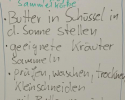 Sammelküche
• Butter in Schüssel in
d. Sonne stellen
• geeignete Kräuter
sammeln
• prüfen, waschen, trocknen
Kleinschneiden